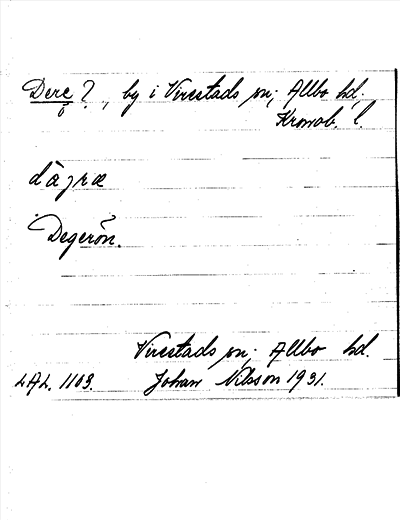 Dere ?, by i Virestads sn; Allbo hd;
Kronob. l.
dàgræ
Degerön.
Virestads sn; Allbo hd.
LAL. 1103. Johan Nilsson 1931.